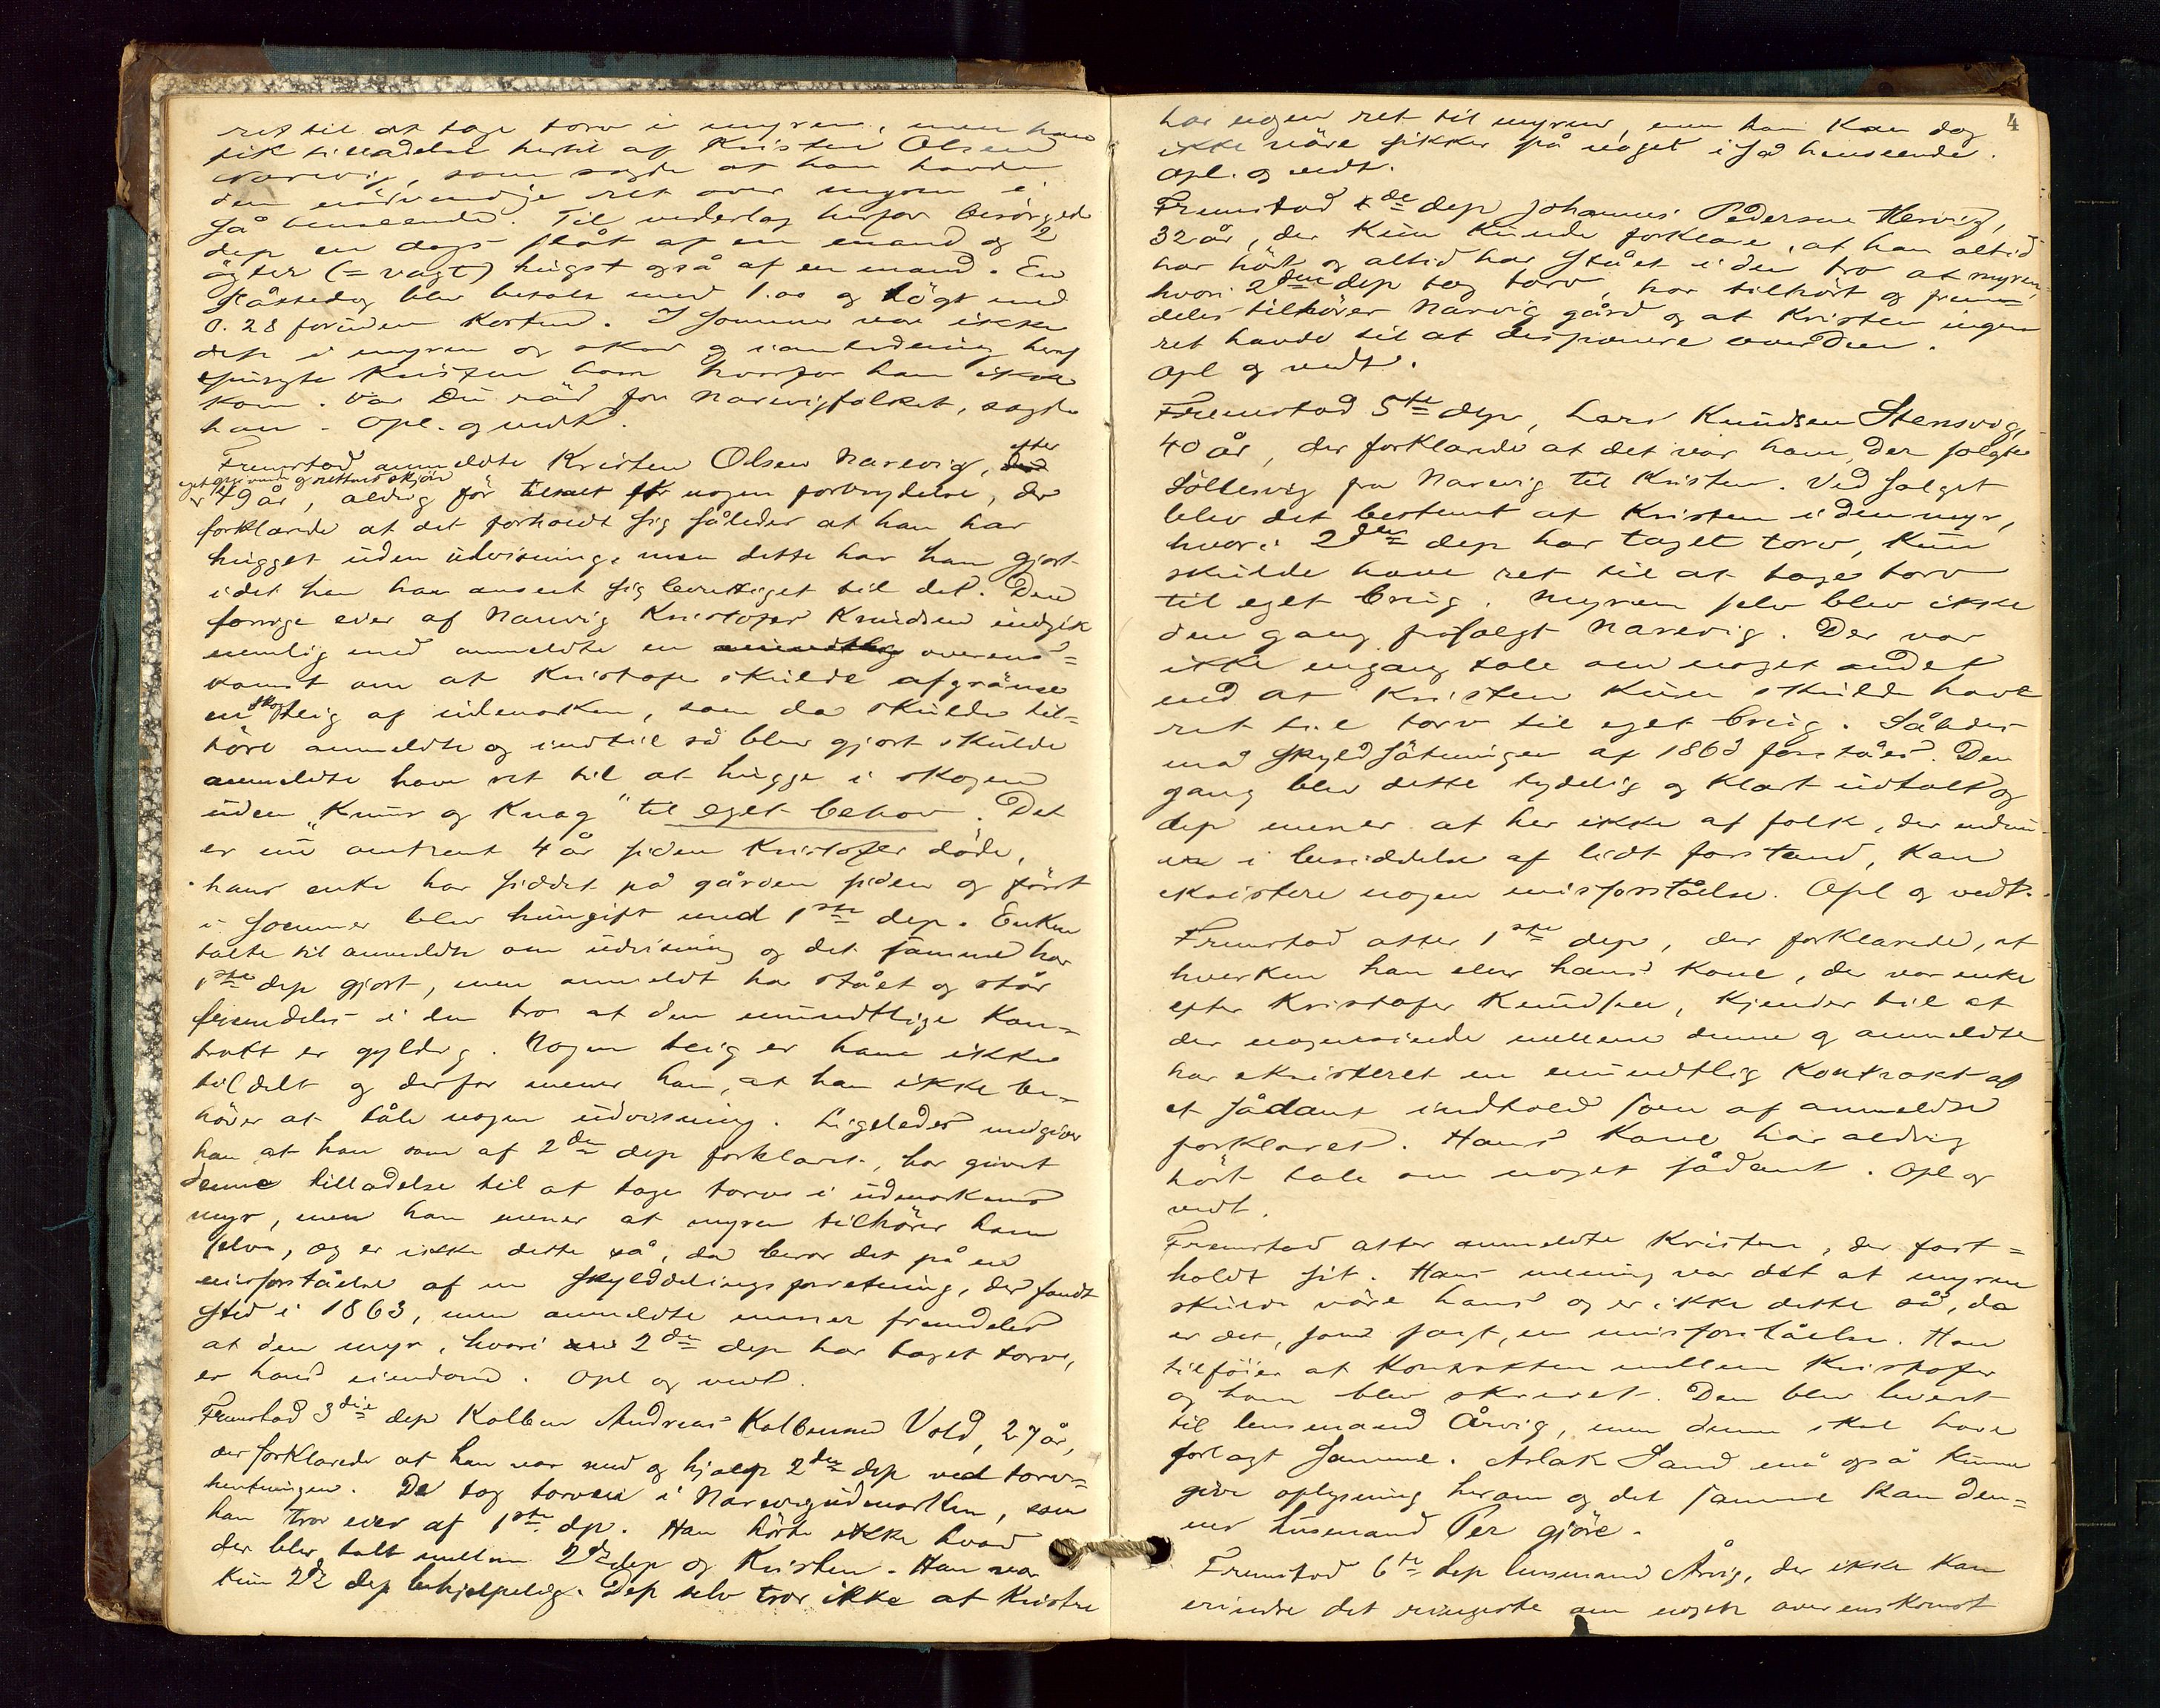 ret til at tage torv i myren, men han
fik tilladelse hertil af Kristen Olsen
Narevig, som sagde at han havde
den nödvendige ret over myren i
så henseende. Til vederlag herfor besörgede
dep en dags slåt af en mand og 2
ägter (= vagt) hugst også af en mand. En
slåttedag blev betalt med 1.00 og lögt med
0.28 foruden Kosten. I sommer var ikke
dep i myren og skar og i anledning heraf
spurgte Kristen ham hvorfor han ikke
kom. Var Du räd for Narevigfolket, sagde
han. Opl. og vedt.
Fremstod anmeldte Kristen Olsen Narevig, efter
eget opgivende og rettens skjön
49 år, aldrig för tiltalt for nogen forbrydelse, der
forklarede at det forholdt sig således at han har
hugget uden udvisning, men dette har han gjort
idet han har anseet sig berettiget til det. Den
forrige eier af Narevig Kristofer Knudsen indgik
nemlig med anmeldte en mundtlig overens=
komst om at Kristofer skulde afgränse
en skogteig af udmarken, som da skulde til=
höre anmeldte og indtil så blev gjort skulde
anmeldte have ret til at hugge i skogen
uden "Knur og Knag" til eget behov. Det
er nu omtrent 4 år siden Kristofer döde,
hans enke har siddet på gården siden og först
i sommer blev hun gift med 1ste dep. Enken
talte til anmeldte om udvisning og det samme har
1ste dep gjort, men anmeldt har stået og står
fremdeles i den tro at den mundtlige Kon=
trakt er gyldig. Nogen teig er ham ikke
tildelt og derfor mener han, at han ikke be=
höver at tåle nogen udvisning. Ligeledes medgiver
han at han som af 2den dep forklaret, har givet
denne tilladelse til at tage torv i udmarkens
myr, men han mener at myren tilhörer ham
selv, og er ikke dette så, da beror det på en
misforståelse af en skylddelingsforretning, der fandt
sted i 1863, men anmeldte mener fremdeles
at den myr, hvori 2den dep har taget torv,
er hans eiendom. Opl og vedt.
Fremstod 3die dep Kolben Andreas Kolbensen Vold, 27 år,
der forklarede at han var med og hjalp 2den dep ved torv=
hentningen. De tog torven i Narevigudmarken, som
han tror eies af 1ste dep. Han hörte ikke hvad
der blev talt mellem 2den dep og Kristen. Han var
kun 2den dep behjelpelig. Dep selv tror ikke at Kristen
4
har nogen ret til myren, men han kan dog
ikke väre sikker på noget i så henseende.
Opl. og vedt.
Fremstod 4de dep Johannes Pedersen Hervig,
32 år, der kun kunde forklare, at han altid
har hört og altid har stået i den tro at myren,
hvori 2den dep tog torv, har tilhört og frem=
deles tilhörer Narevig gård og at Kristen ingen
ret havde til at disponere over den.
Opl og vedt.
Fremstod 5te dep, Lars Knudsen Stensvig,
40 år, der forklarede at det var ham, der solgte
Söltesvig fra Narevig til Kristen. Ved salget
blev det bestemt at Kristen i den myr,
hvori 2den dep har taget torv, kun
skulde have ret til at tage torv
til eget brug. Myren selv blev ikke
den gang frasolgt Narevig. Der var
ikke engang tale om noget andet
end at Kristen kun skulde have
ret til torv til eget brug. Således
må skyldsätningen af 1863 forståes. Den
gang blev dette tydelig og klart udtalt og
dep mener at her ikke af folk, der endnu
er i besiddelse af lidt forstand, kan
eksistere nogen misforståelse. Opl og vedt.
Fremstod atter 1ste dep, der forklarede, at
hverken han eller hans Kone, der var enke
efter Kristofer Knudsen, kjender til at
der nogensinde mellem denne og anmeldte
har eksisteret en mundtlig Kontrakt af
et sådant indhold som af anmeldte
forklaret. Hans Kone har aldrig
hört tale om noget sådant. Opl og
vedt.
Fremstod atter anmeldte Kristen, der fast=
holdt sit. Hans mening var det at myren
skulde väre hans og er ikke dette så, da
er det, som sagt, en misforståelse. Han
tilföier at Kontrakten mellem Kristofer
og ham blev skrevet. Den blev levert
til lensmand Årvig, men denne skal have
forlagt samme. Aslak Sand må også kunne
give oplysning herom og det samme kan den=
nes husmand Per gjöre.
Fremstod 6te dep lensmand Årvig, der ikke kan
erindre det ringeste om nogen overenskomst